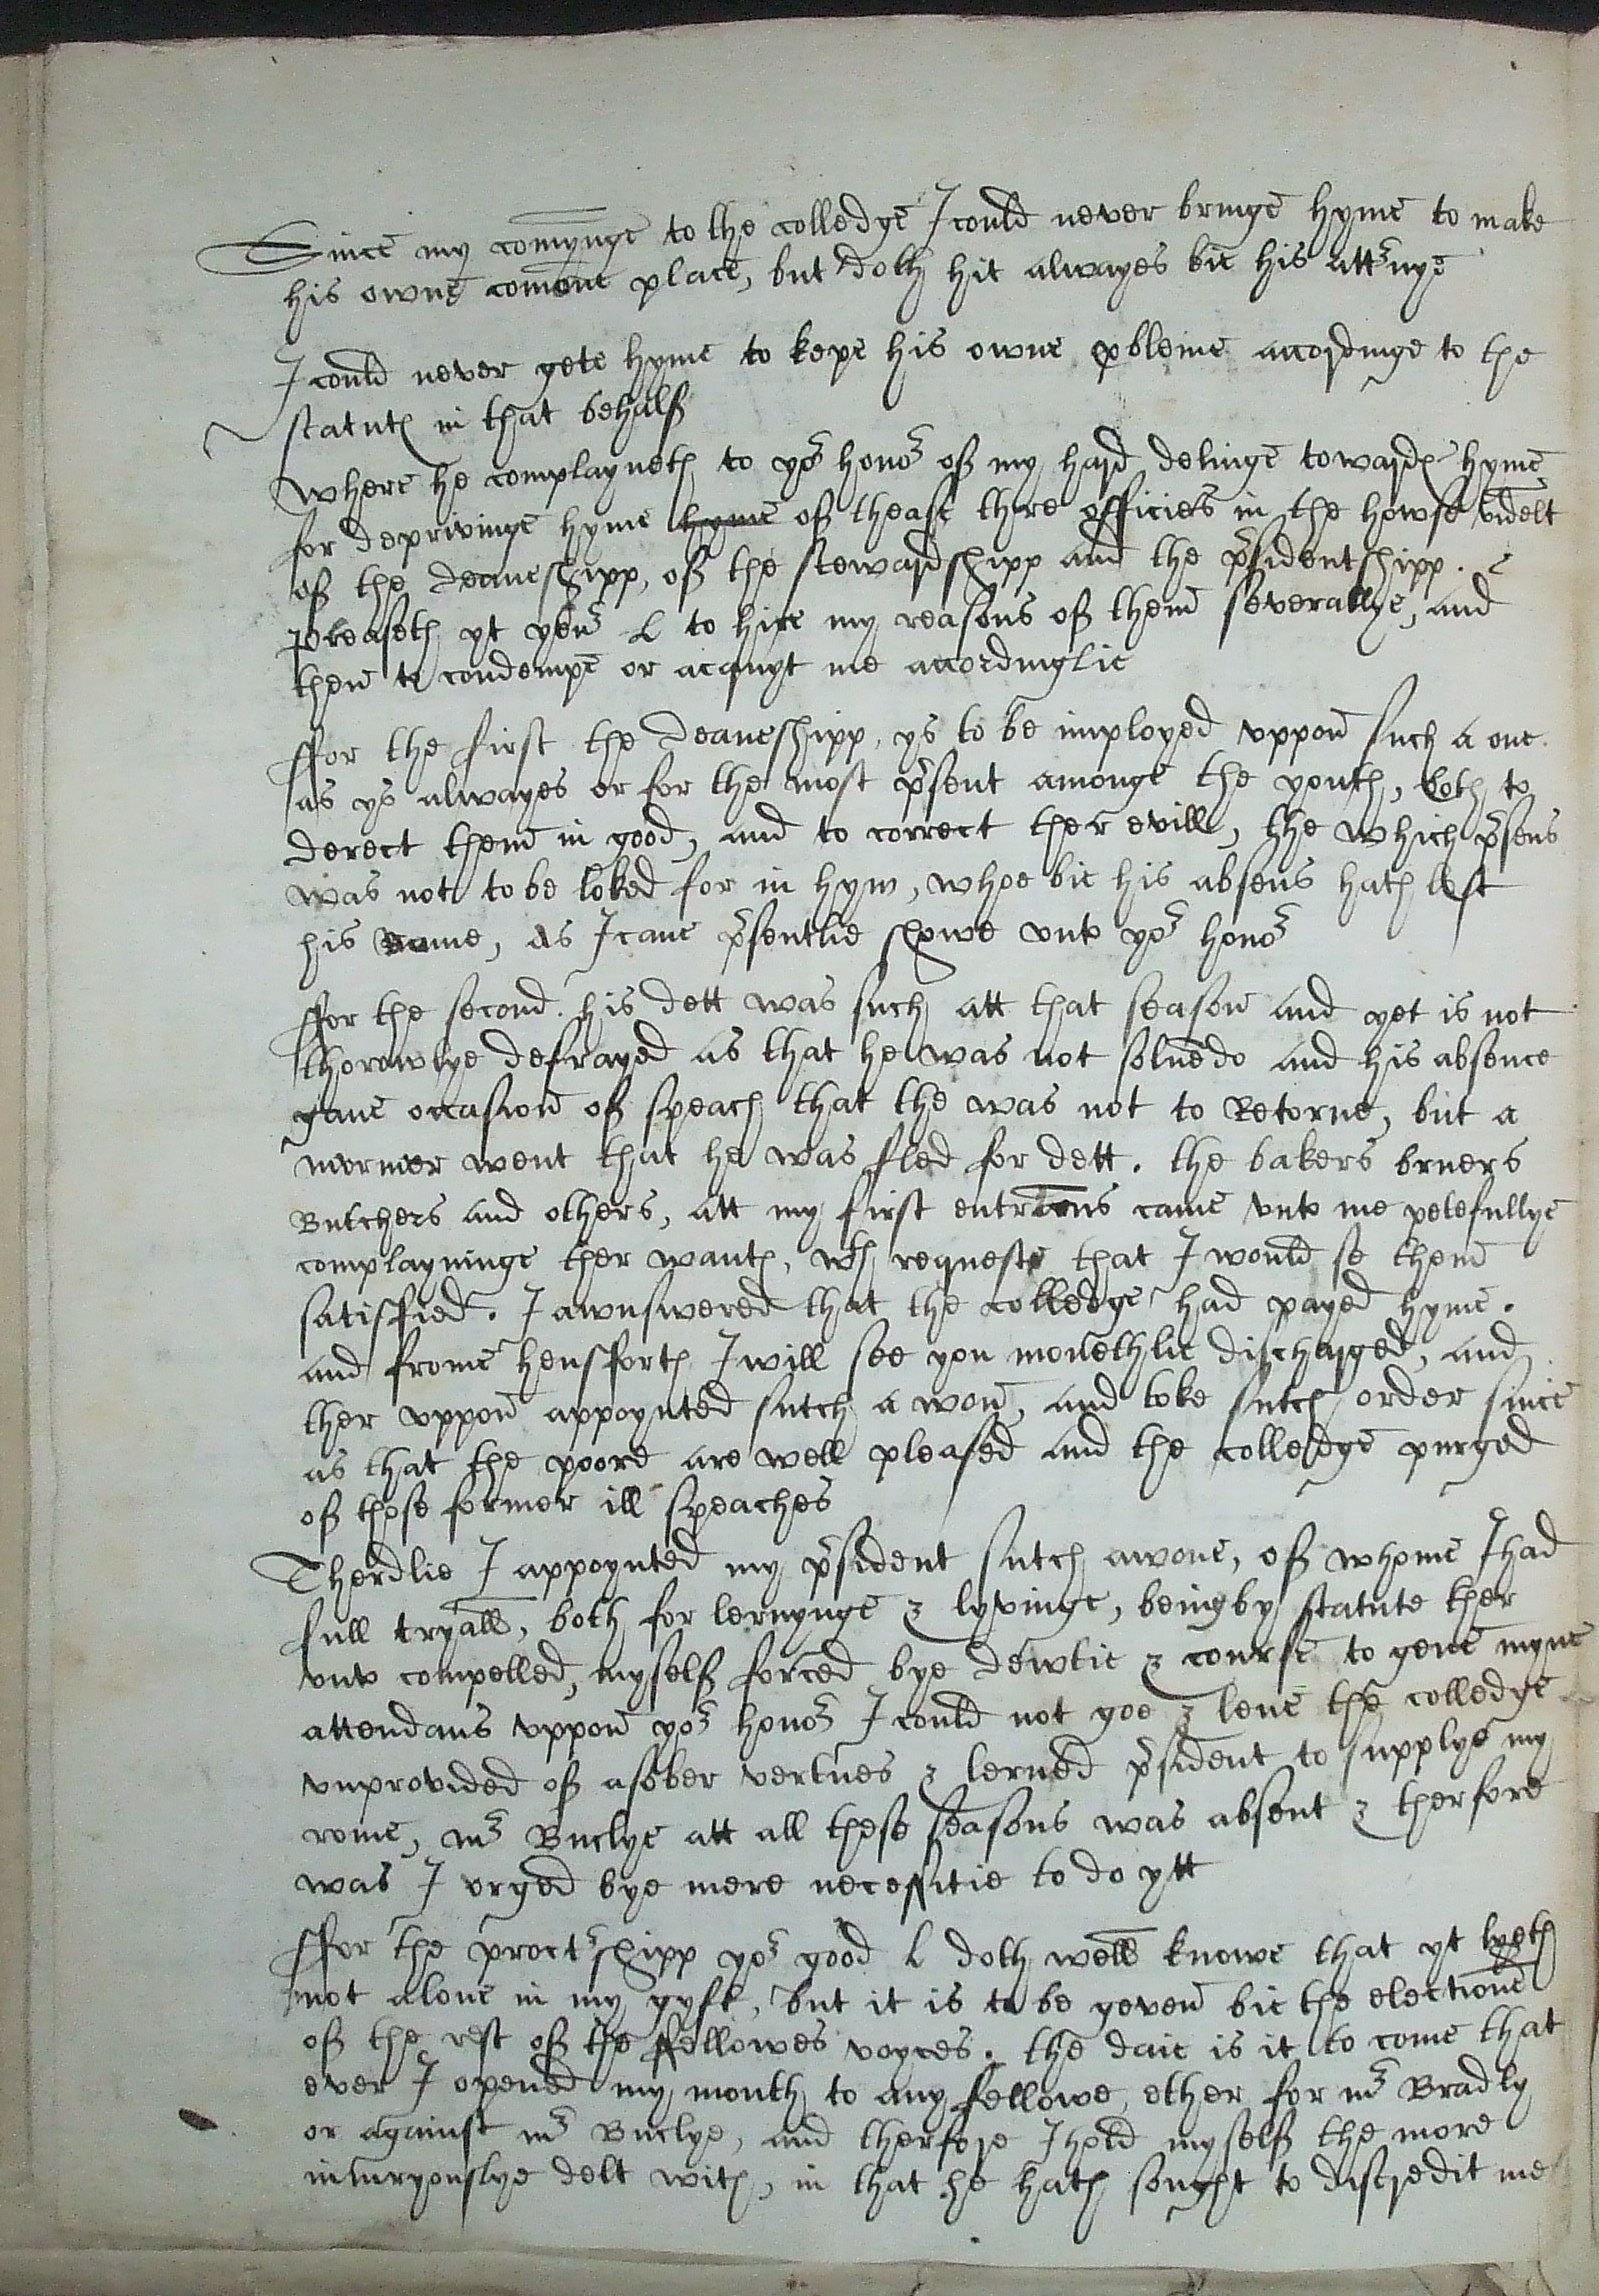 Since my comynge to the colledge I could never bringe hyme to make
his owne comone place, but doth hit alwayes bie his attrnye
I could never gete hyme to kepe his owne pbleme accordinge to the
statutes in that behalf
Where he complayneth to yor honor of my hard delinge towardes hyme
for deprivinge hyme hyme of thease thre officies in the howse videlt
of the Deaneshipp, of the stewardshipp and the psidentshipp.
Pleaseth yt your L to hire my reasons of them severallye, and
then to condempe or acquyt me accordinglie
ffor the first the Deaneshipp, ys to be imployed uppon such a one
as ys alwayes or for the most psent amonge the youth, both to
derect them in good, and to correct ther evill, the which psens
was not to be loked for in hym, whoe bie his absens hath lost
his rome, as I cane psentlie showe unto yor honor
ffor the second. his dett was such att that season and yet is not
thorowlye defrayed as that he was not solvedo and his absence
gave occasion of speach that the was not to Retorne, but a
mormer went that he was fled for dett. the bakers bruers
Butchers and others, att my first entrans came unto me petefullye
complayninge ther wantes, wth requeste that I would se them
satisfied. I awnswered that the colledge had payed hyme.
and frome hensforth I will see you monethlie discharged, and
ther uppon appoynted sutch a won, and toke sutch order since
as that the poore are well pleased and the colledge purged
of those former ill speaches
Therdlie I appoynted my psident sutch awone, of whome I had
full tryall, both for lernynge & lyvinge, being by statute ther
unto compelled, myself forced bye dewtie & course to geve myne
attendans uppon yor honor I could not goe & leve the colledge
unprovided of asober vertues & lerned psident to supplye my
rome, mr Buclye att all these seasons was absent & therfore
was I urged bye mere necessitie to do ytt
ffor the proctrshipp yor good L doth well knowe that yt lyeth
not alone in my gyft, but it is to be geven bie the electione
of the rest of the fellowes voyces. the daie is it to come that
ever I opened my mouth to any fellowe, ether for mr Bradly
or against mr Buclye, and therfore I hold myself the more
iniuryouslye delt with, in that he hath sought to discredit me